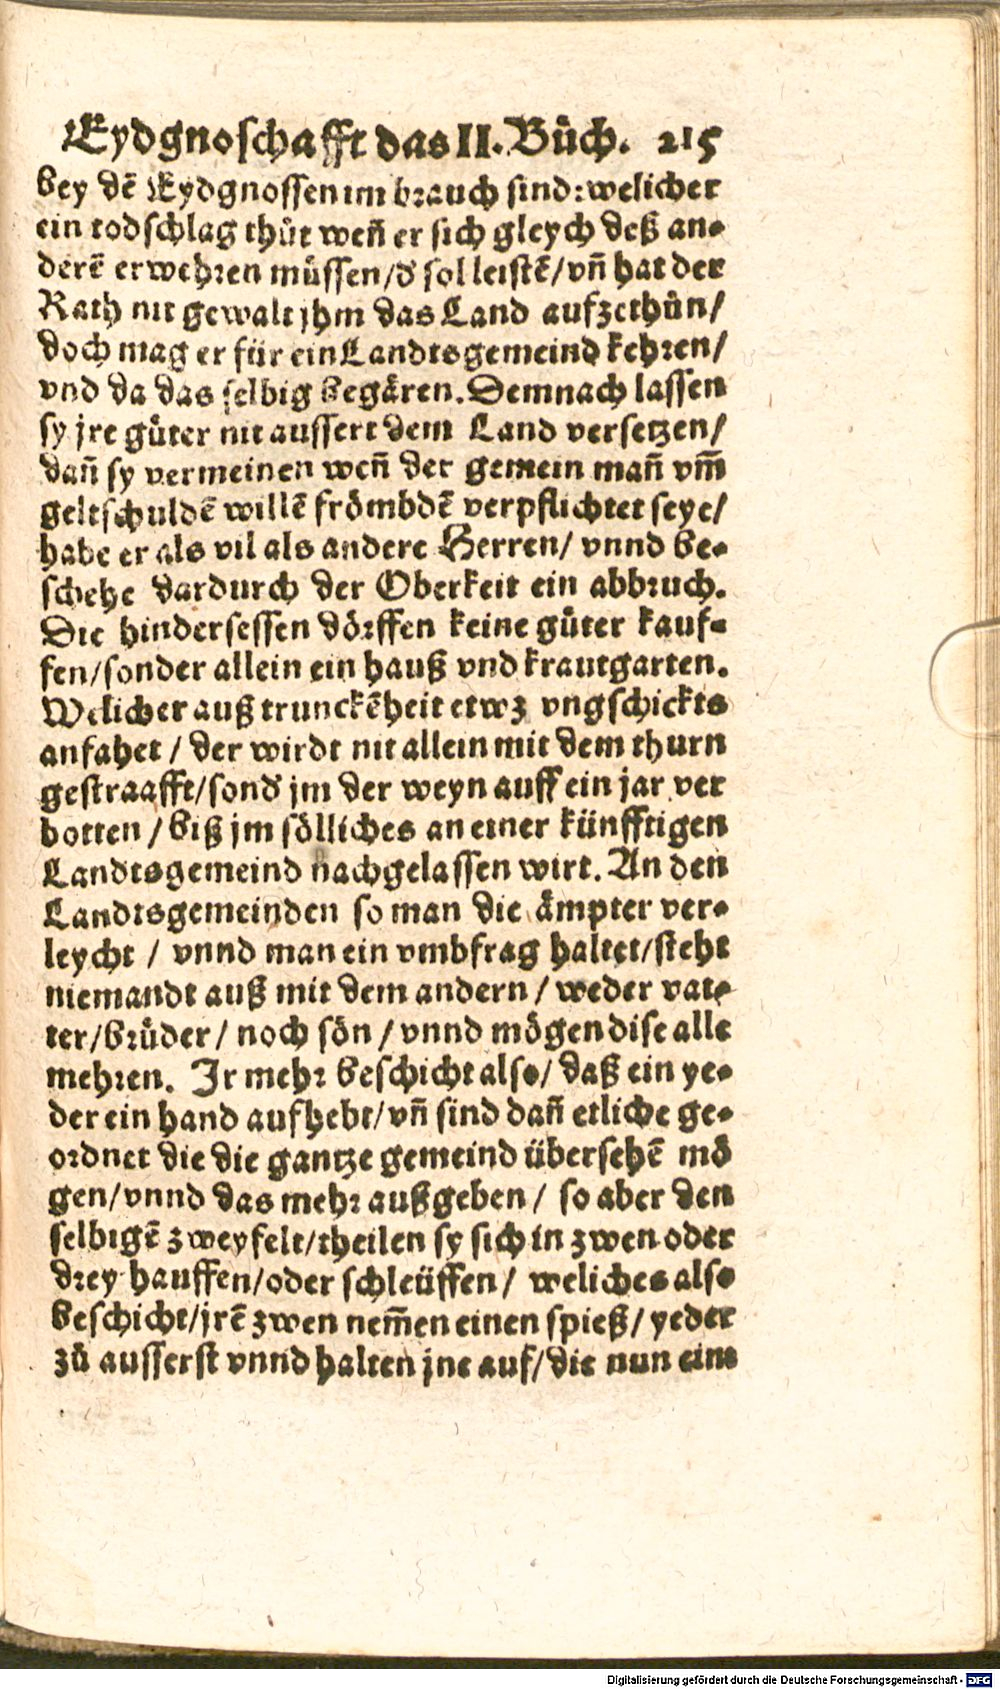 Eydgnoschafft das II. Bůch. 215
bey dē Eydgnossen im brauch sind: welicher
ein todschlag thůt weñ er sich gleych deß an-
derē erwehren müssen/ď sol leistē/vñ hat der
Rath nit gewalt jhm das Land aufzethůn/
doch mag er für ein Landtsgemeind kehren/
vnd da das selbig begären. Demnach lassen
sy jre güter nit aussert dem Land versetzen/
dañ sy vermeinen weñ der gemein mañ vm̃
geltschuldē willē frömbdē verpflichtet seye/
habe er als vil als andere Herren/ vnnd be-
schehe dardurch der Oberkeit ein abbruch.
Die hindersessen dörffen keine güter kauf-
fen/sonder allein ein hauß vnd krautgarten.
Welicher auß trunckēheit etwz vngschickts
anfahet / der wirdt nit allein mit dem thurn
gestraafft/sonď jm der weyn auff ein jar ver
botten / biß jm sölliches an einer künfftigen
Landtsgemeind nachgelassen wirt. An den
Landtsgemeinden so man die ämpter ver-
leycht / vnnd man ein vmbfrag haltet/steht
niemandt auß mit dem andern / weder vat-
ter/brůder / noch sön / vnnd mögen dise alle
mehren. Ir mehr beschicht also/ daß ein ye-
der ein hand aufhebt/vñ sind dañ etliche ge-
ordnet die die gantze gemeind übersehē mö
gen/vnnd das mehr außgeben / so aber den
selbigē zweyfelt/theilen sy sich in zwen oder
drey hauffen/oder schleüffen / weliches also
beschicht/jrē zwen nem̃en einen spieß/ yeder
zů ausserst vnnd halten jne auf/die nun eins
Digitalisierung gefördert durch die Deutsche Forschungsgemeinschaft - DFG